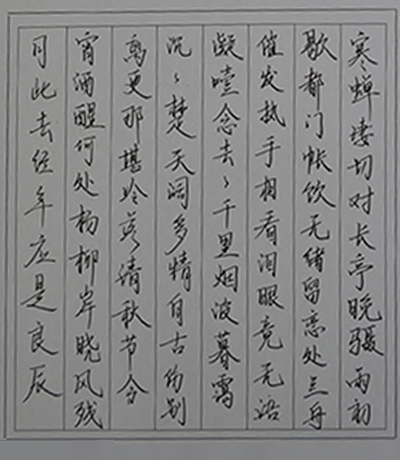 寒蝉凄切对长亭晚骤雨初
歇都门帐饮无绪留恋处兰舟
催发执手相看泪眼竟无语
凝噎念去々千里烟波暮霭
沉々楚天阔多情自古伤别
离更那堪冷落清秋节今
宵酒醒何处杨柳岸晓风残
月此去经年应是良辰